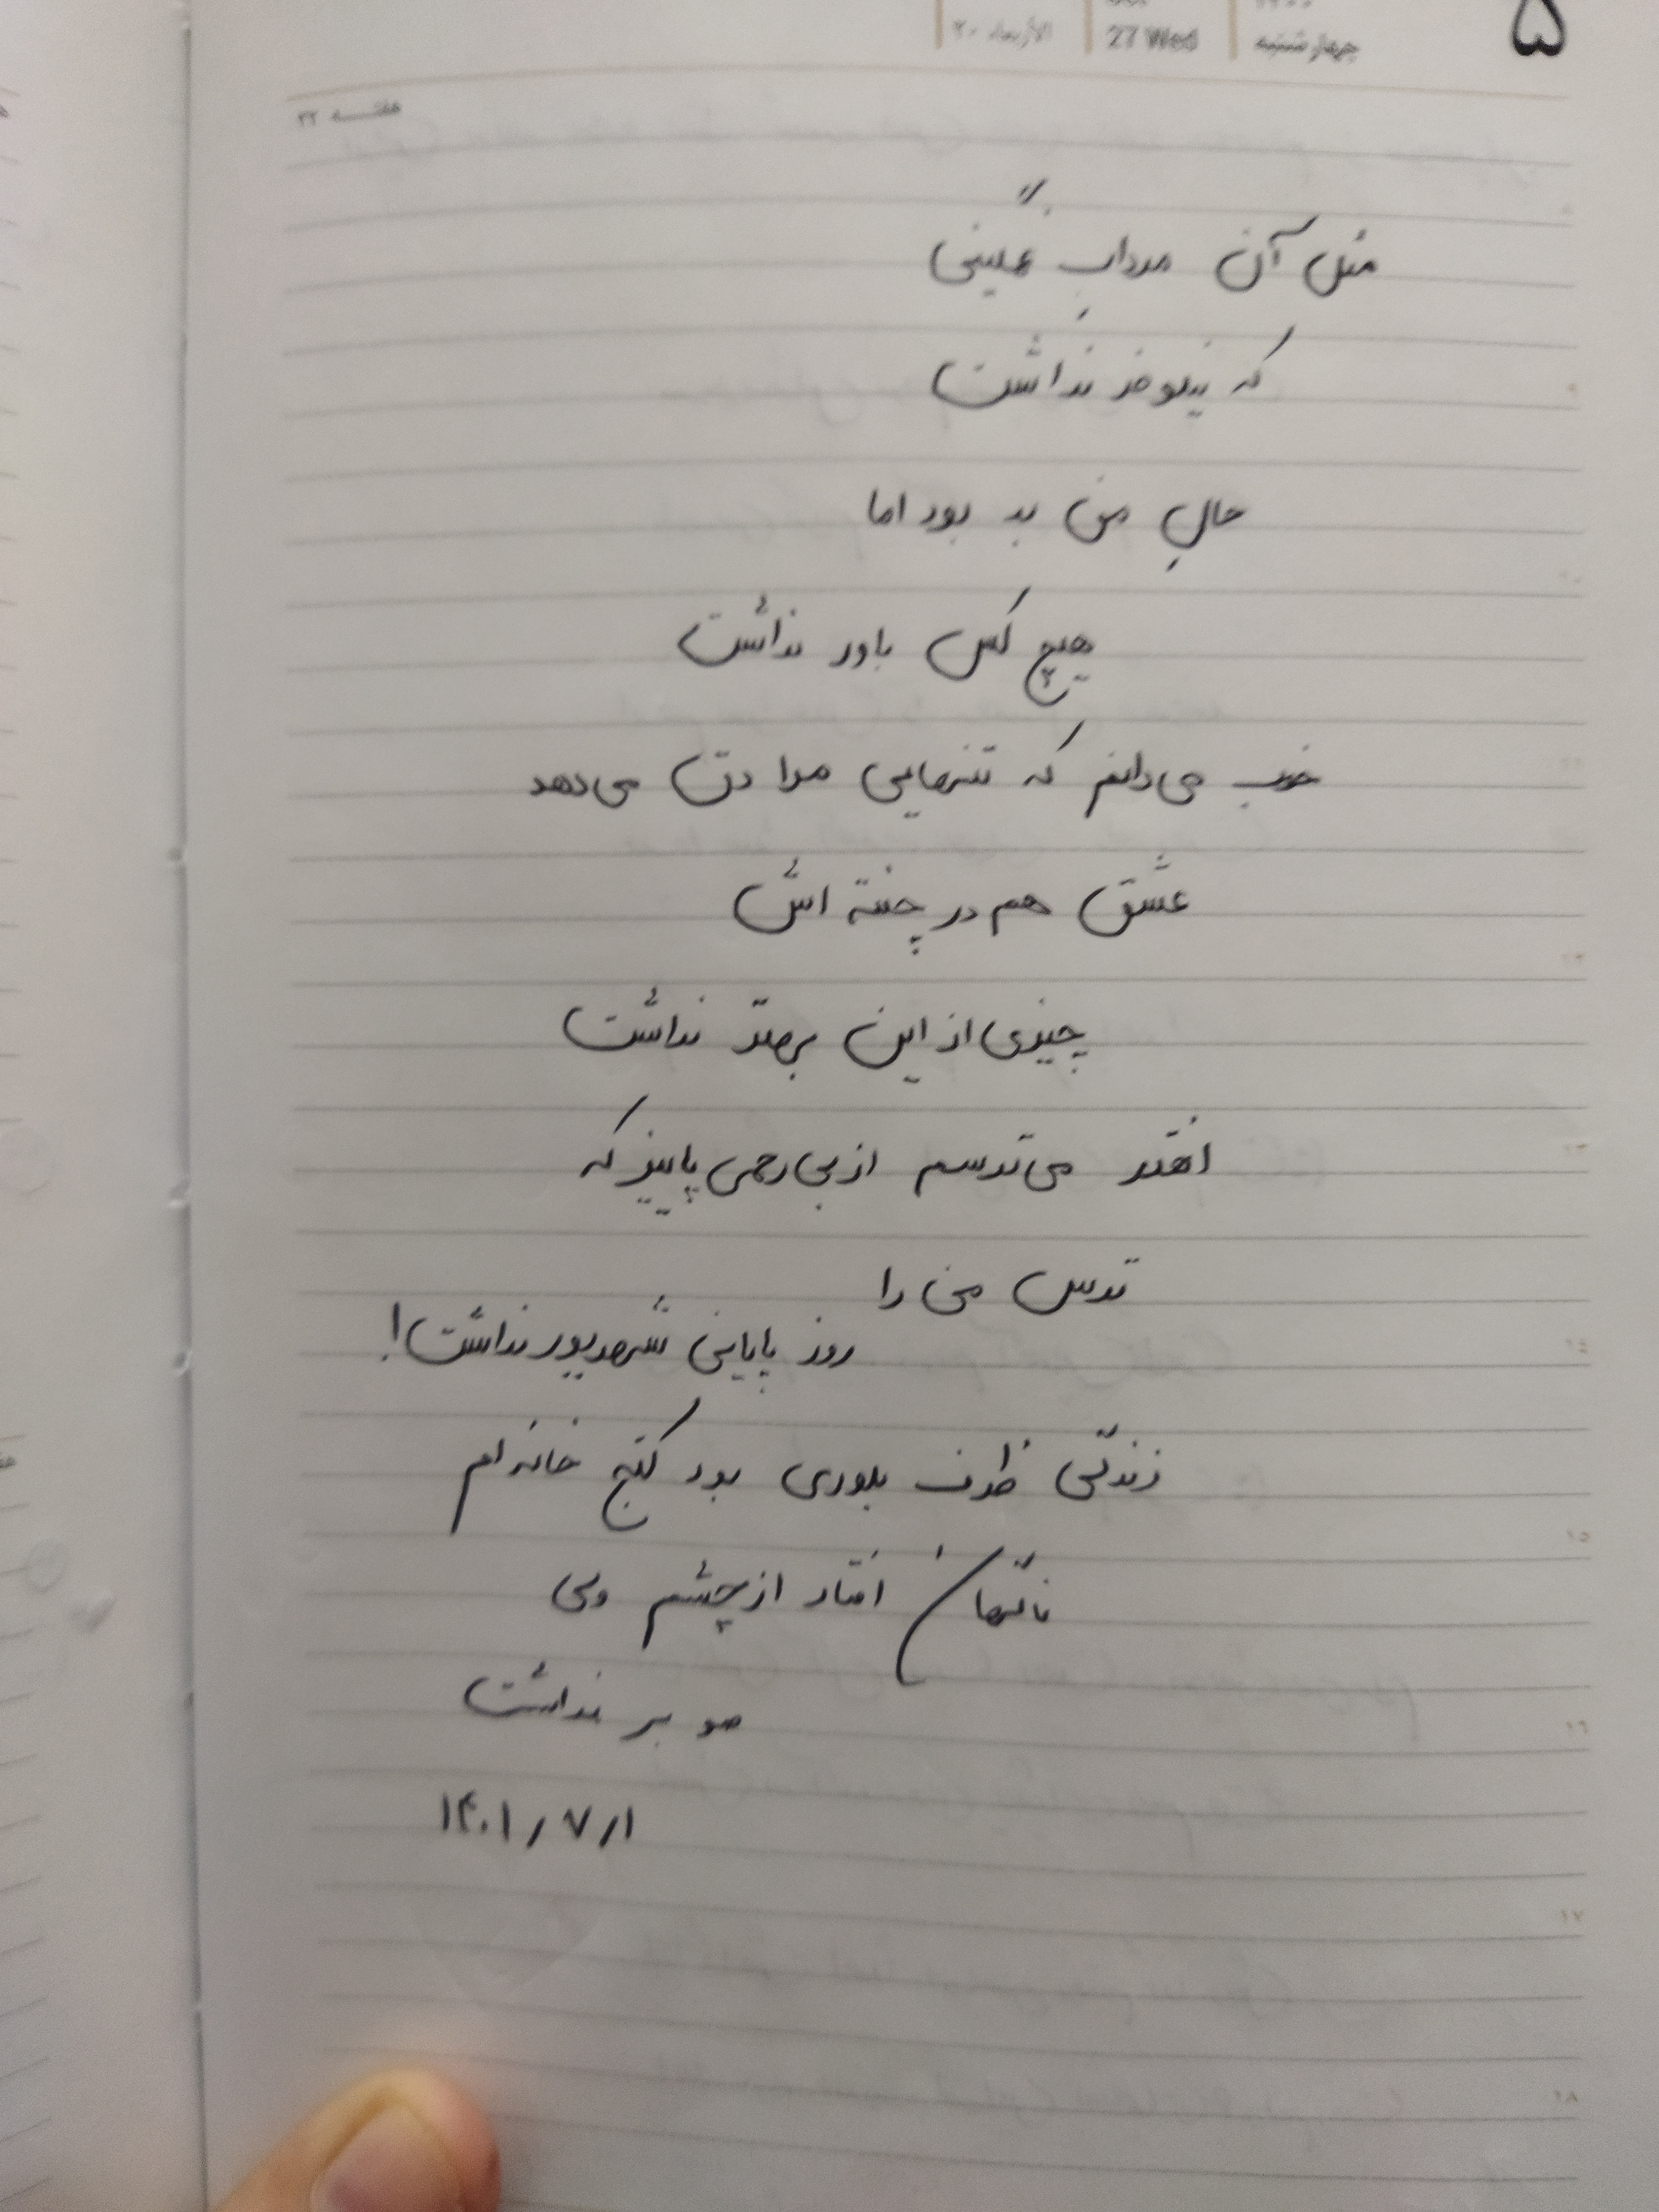 ۵
چهارشنبه
27 Wed
الأربعاء ۲۰
هفتـــه ۳۲
مثل آن مردابِ غمگینی
که نیلوفر نداشت
حالِ من بد بود اما
هیچ کس باور نداشت
خوب می‌دانم که تنهایی مرا دق می‌دهد
عشق هم در چنته اش
چیزی از این بهتر نداشت
آنقدر می‌ترسم از بی رحمی پاییز که
ترس من را
روز پایانی شهریور نداشت!
زندگی ظرف بلوری بود کنج خانه ام
ناگهان افتاد از چشمم ولی
مو بر نداشت
۱۴۰۱/۷/۱